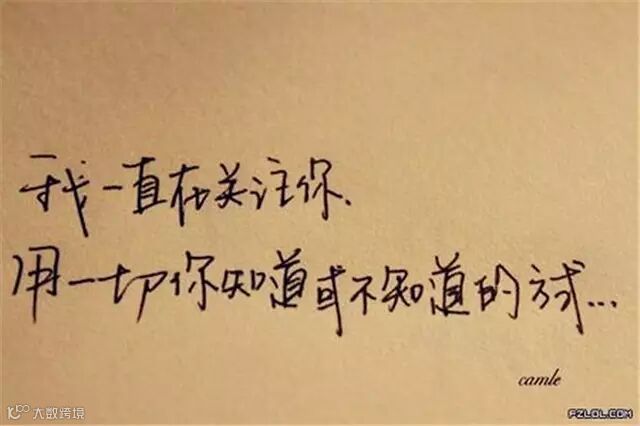 我一直在关注你.
用一切你知道或不知道的方式...
camle
大数跨境
PZLOL.COM